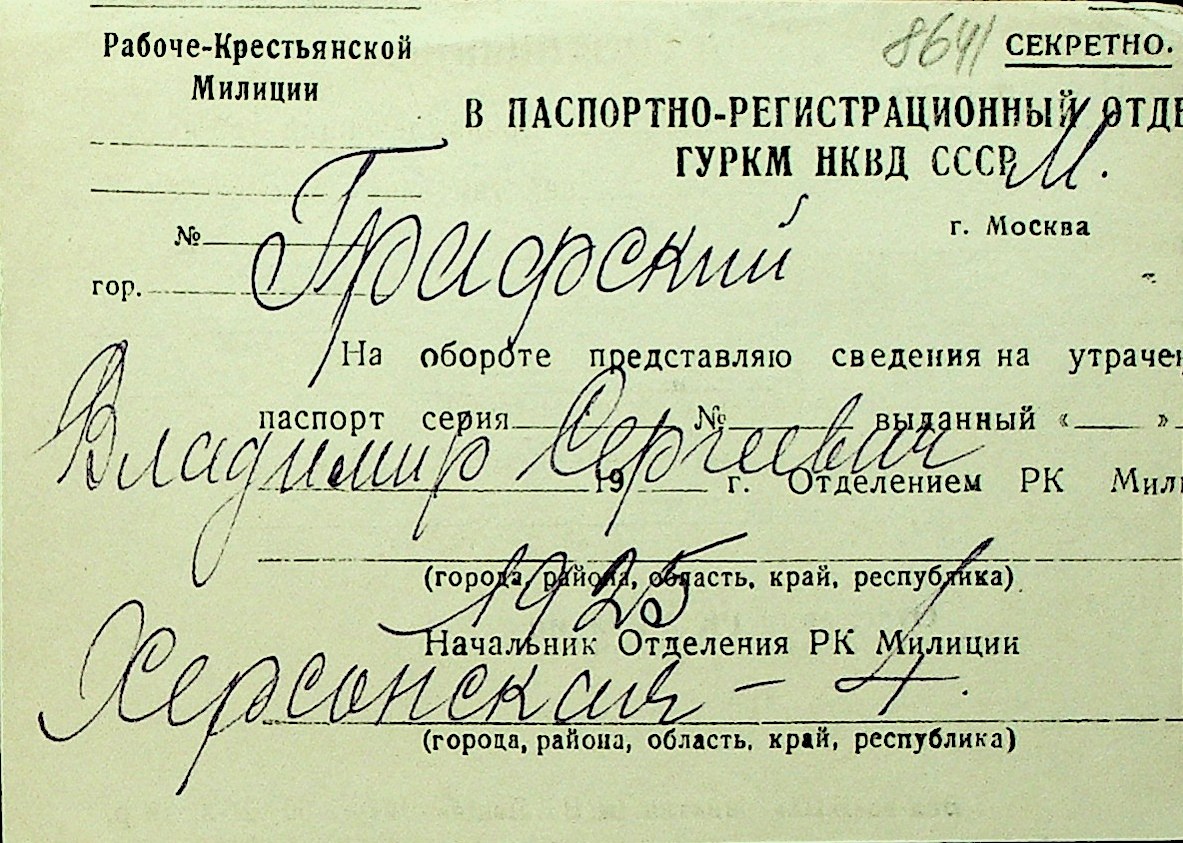 Рабоче-Крестьянской
Милиции
8641
СЕКРЕТНО.
В ПАСПОРТНО-РЕГИСТРАЦИОННЫЙ ОТДЕ
ГУРКМ НКВД СССР
М.
г. Москва
№
гор.
Графский
На обороте представляю сведения на утрачен
паспорт серия № выданный « »
Владимир Сергеевич
19 г. Отделением РК Мили
(города, района, область, край, республика)
1925
Начальник Отделения РК Милиции
Херсонская - 4.
(города, района, область, край, республика)